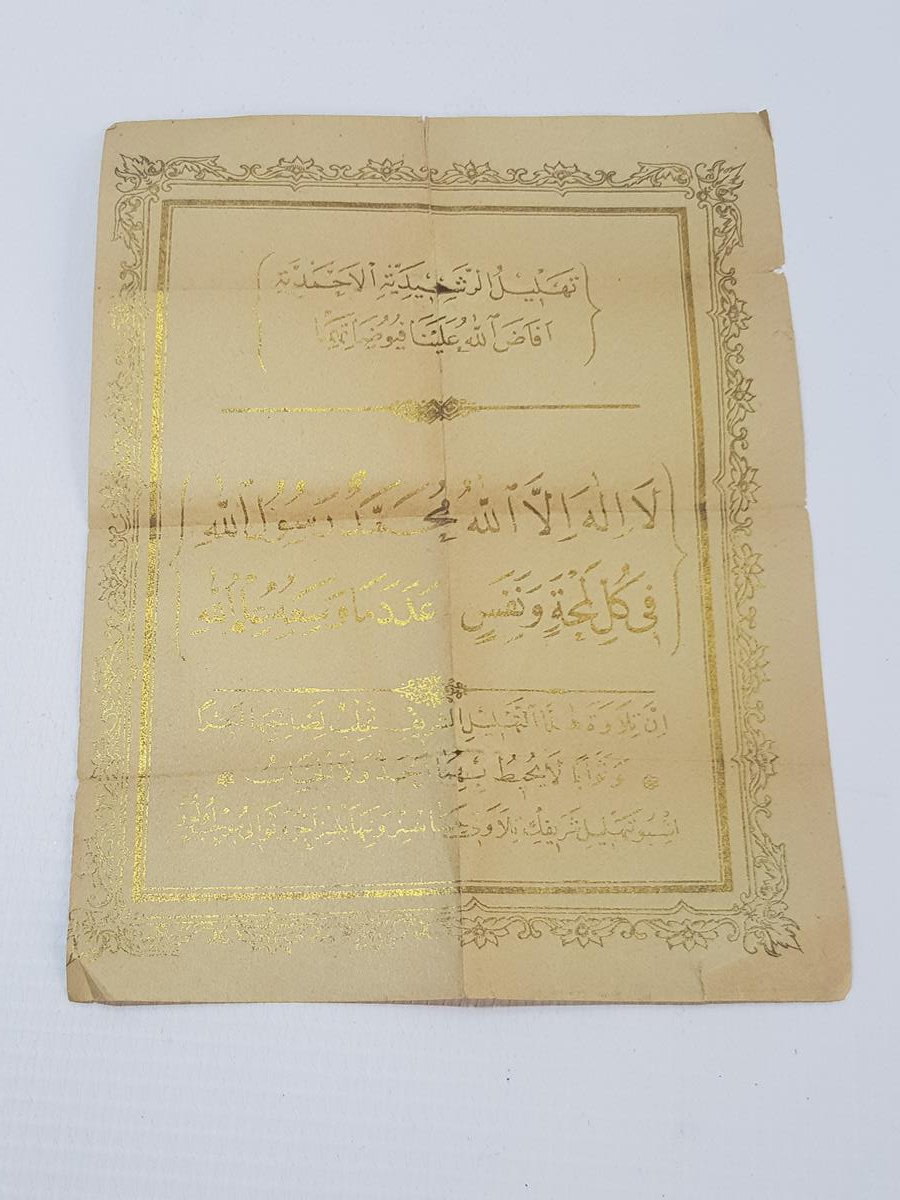 تَهْلِيلُ الرَّشِيدِيَّةِ الْاَحْمَدِيَّةِ
اَفَاضَ اللّٰهُ عَلَيْنَا فُيُوضَاتِهَا
لَا اِلٰهَ اِلَّا اللّٰهُ مُحَمَّدٌ رَسُولُ اللّٰهِ
فِى كُلِّ لَمْحَةٍ وَنَفَسٍ عَدَدَ مَا وَسِعَهُ عِلْمُ اللّٰهِ
اِنَّ تِلَاوَةَ هٰذَا التَّهْلِيلِ الشَّرِيفِ
وَثَوَابًا لَا يُحِيطُ بِهِمَا
اشبو تهليل شريفك تلاوت